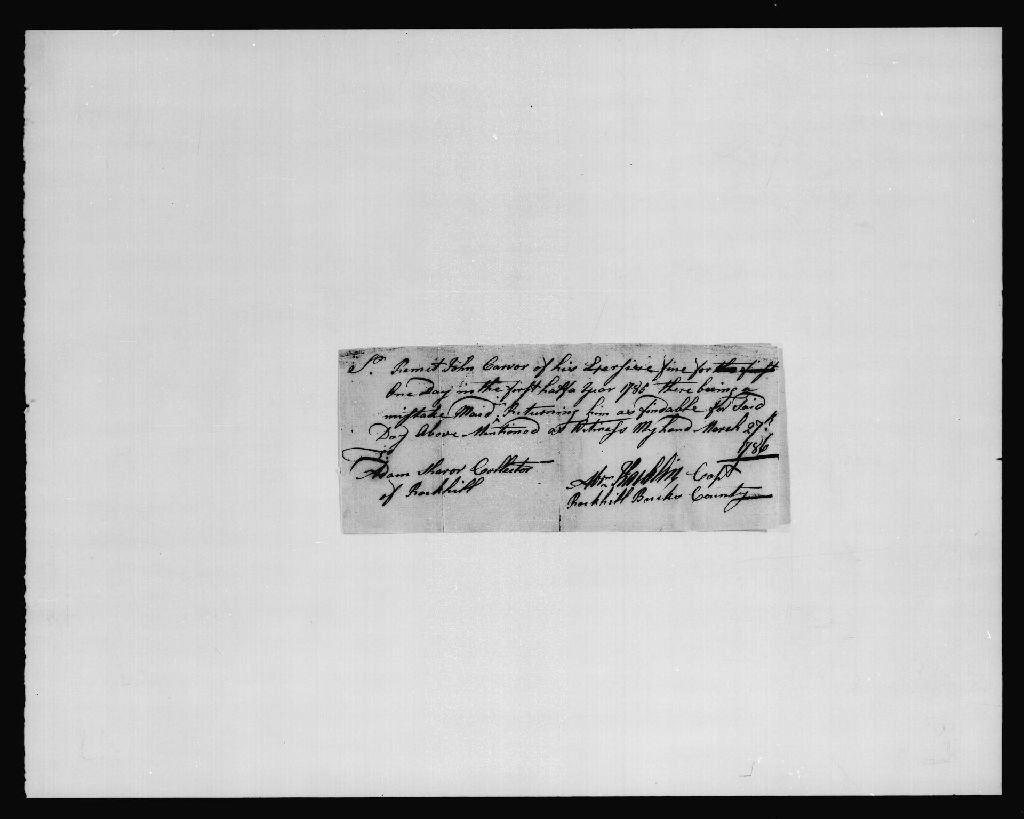 Sr. Remit John Carver of his Exersise fine for the first
One Day in the first half a Year 1785 there being a
mistake Maid. Returning him as findable for Said
Day Above Mentioned as Witness My hand March 27th
1786
To
Adam Sharor Collector
of Rockhill
Capt
Rockhill Bucks County